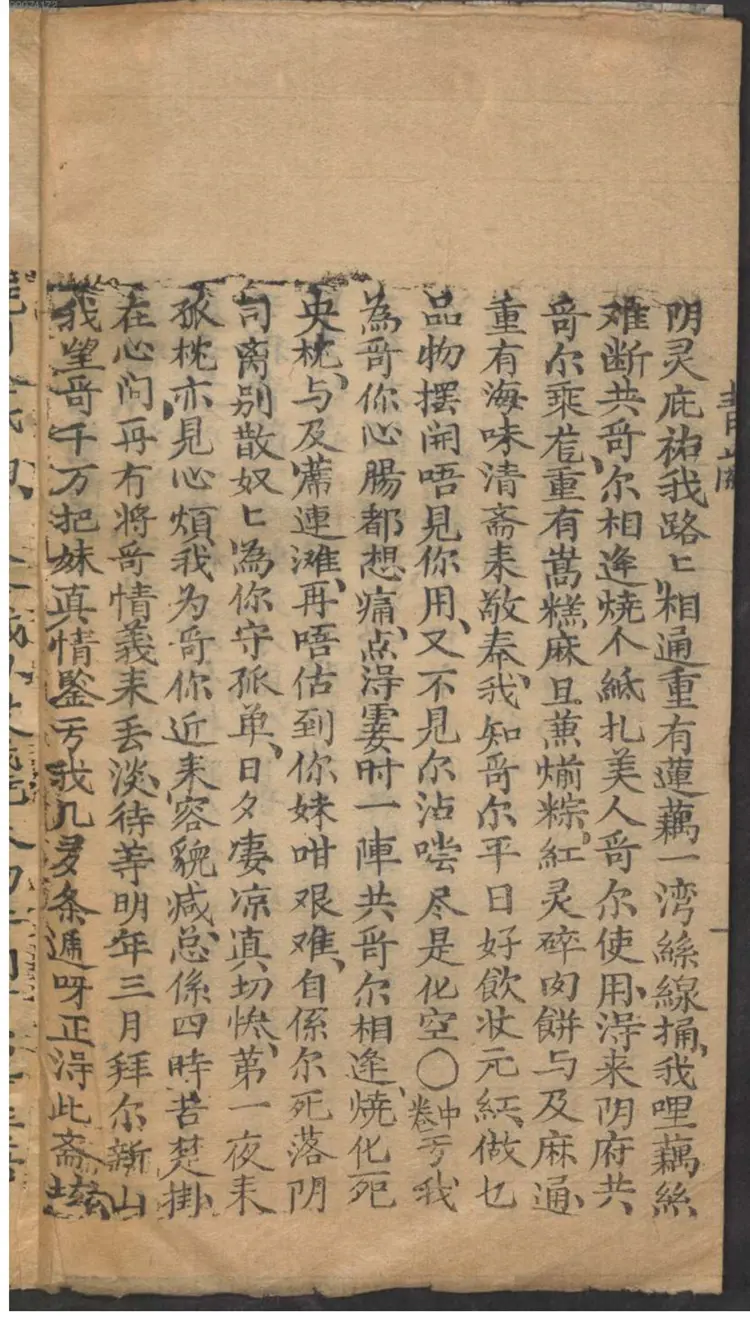 阴灵庇祐我路匕相通重有蓮藕一湾絲線捅、我哩藕絲
难断共哥尔相逢烧个紙扎美人哥尔使用、淂来阴府共
哥尔乘、重有嵩糕麻旦蕉煎粽、紅灵碎肉餅与及麻通、
重有海味清斋耒敬奉、我知哥尔平日好飲壮元紅、做乜
品物摆開唔見你用、又不見尔沾嚐尽是化空〇卷中亏我
為哥你心腸都想痛、点淂霎时一陣共哥尔相逢、焼化死
央枕、与及蓆連滩、再唔估到你妹咁艰难、自係尔死落阴
司离别散奴匕為你守孤单、日夕凄凉真切惨、第一夜耒
孤枕亦見心煩、我为哥你近耒容貌减、总係四時苦楚掛
在心问再冇将哥情義耒丢淡、待等明年三月拜尔新山
我望哥千万把妹真情鑒亏我几多条逓呀正淂此斋